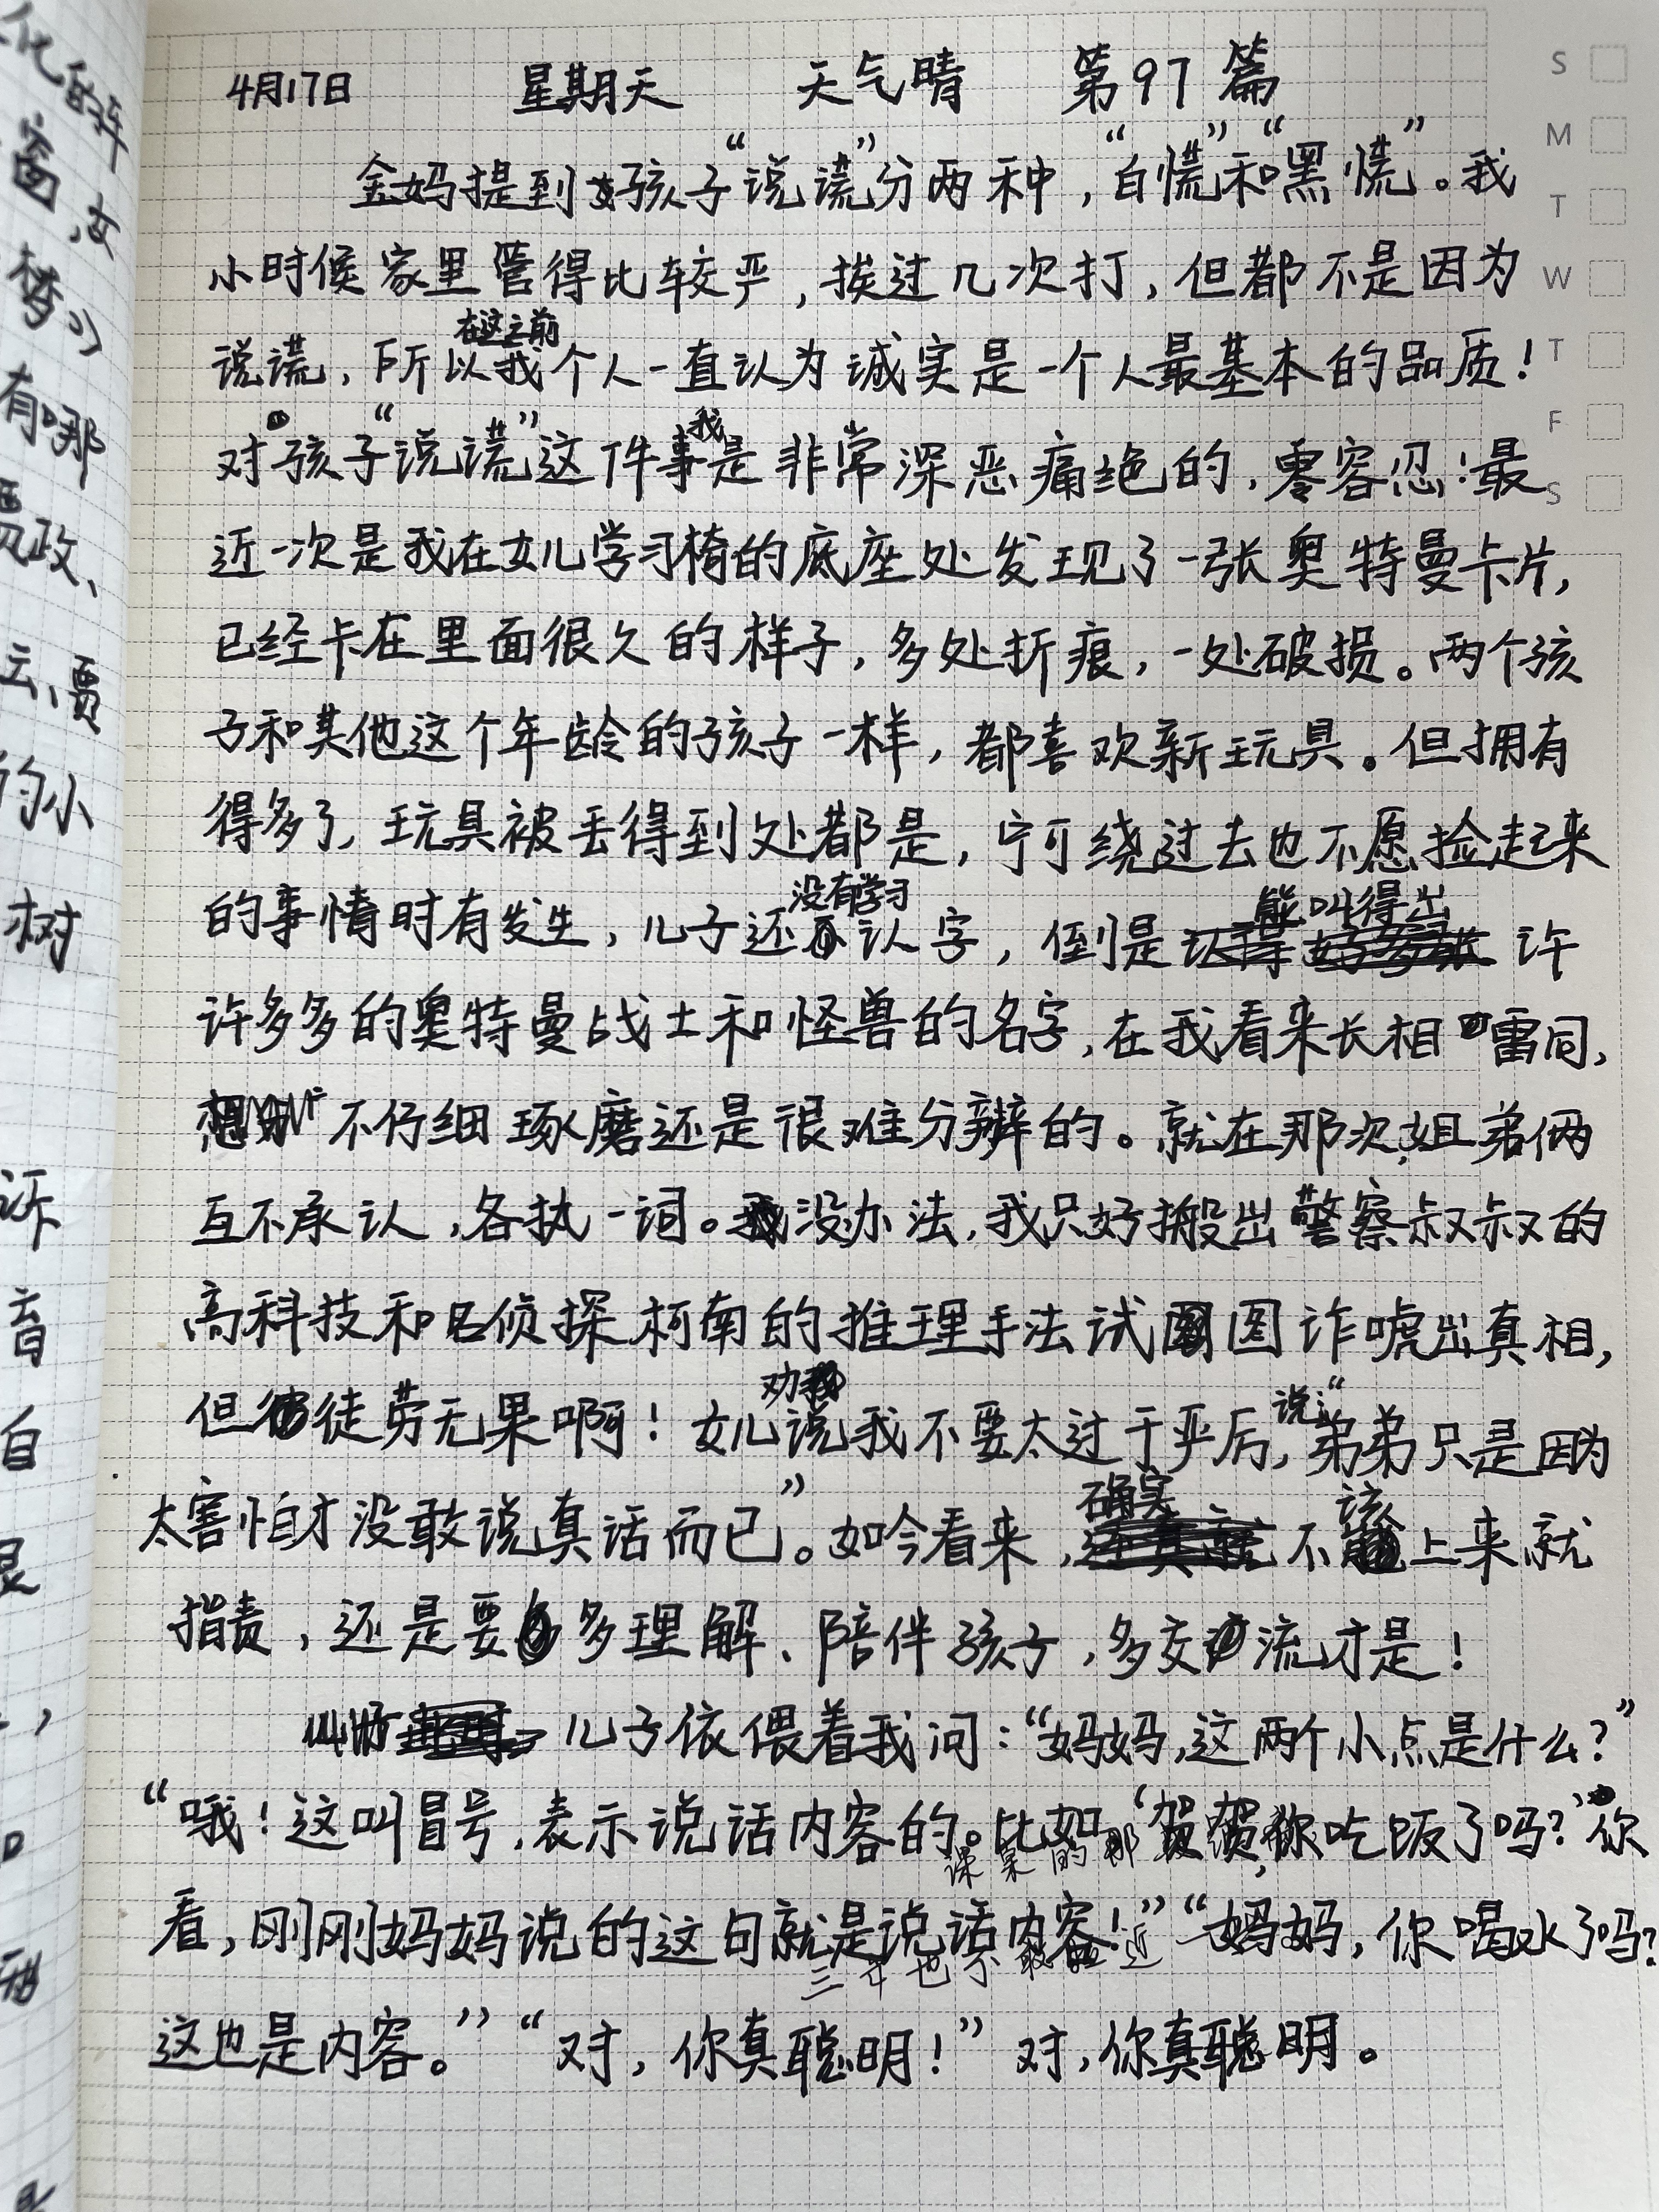 4月17日 星期天 天气晴 第97篇
金妈提到孩子“说谎”分两种，“白慌”和“黑慌”。我
小时候家里管得比较严，挨过几次打，但都不是因为
在这之前
说谎，所以我个人一直认为诚实是一个人最基本的品质！
我
对孩子“说谎”这件事是非常深恶痛绝的，零容忍！最
近一次是我在女儿学习椅的底座处发现了一张奥特曼卡片，
已经卡在里面很久的样子，多处折痕，一处破损。两个孩
子和其他这个年龄的孩子一样，都喜欢新玩具。但拥有
得多了，玩具被丢得到处都是，宁可绕过去也不愿捡起来
没有学习 能叫得出
的事情时有发生，儿子还认字，倒是许
许多多的奥特曼战士和怪兽的名字，在我看来长相雷同，
不仔细琢磨还是很难分辨的。就在那次，姐弟俩
互不承认，各执一词。没办法，我只好搬出警察叔叔的
高科技和名侦探柯南的推理手法试图诈唬出真相，
劝 说：“
但徒劳无果啊！女儿说我不要太过于严厉，弟弟只是因为
确实 该
太害怕才没敢说真话而已”。如今看来，不上来就
指责，还是要多理解、陪伴孩子，多交流才是！
儿子依偎着我问：“妈妈，这两个小点是什么？”
“哦！这叫冒号，表示说话内容的。比如‘贺贺，你吃饭了吗？’你
课桌的那
看，刚刚妈妈说的这句就是说话内容！”“妈妈，你喝水了吗？
这也是内容。”“对，你真聪明！”对，你真聪明。
S
M
T
W
T
F
S